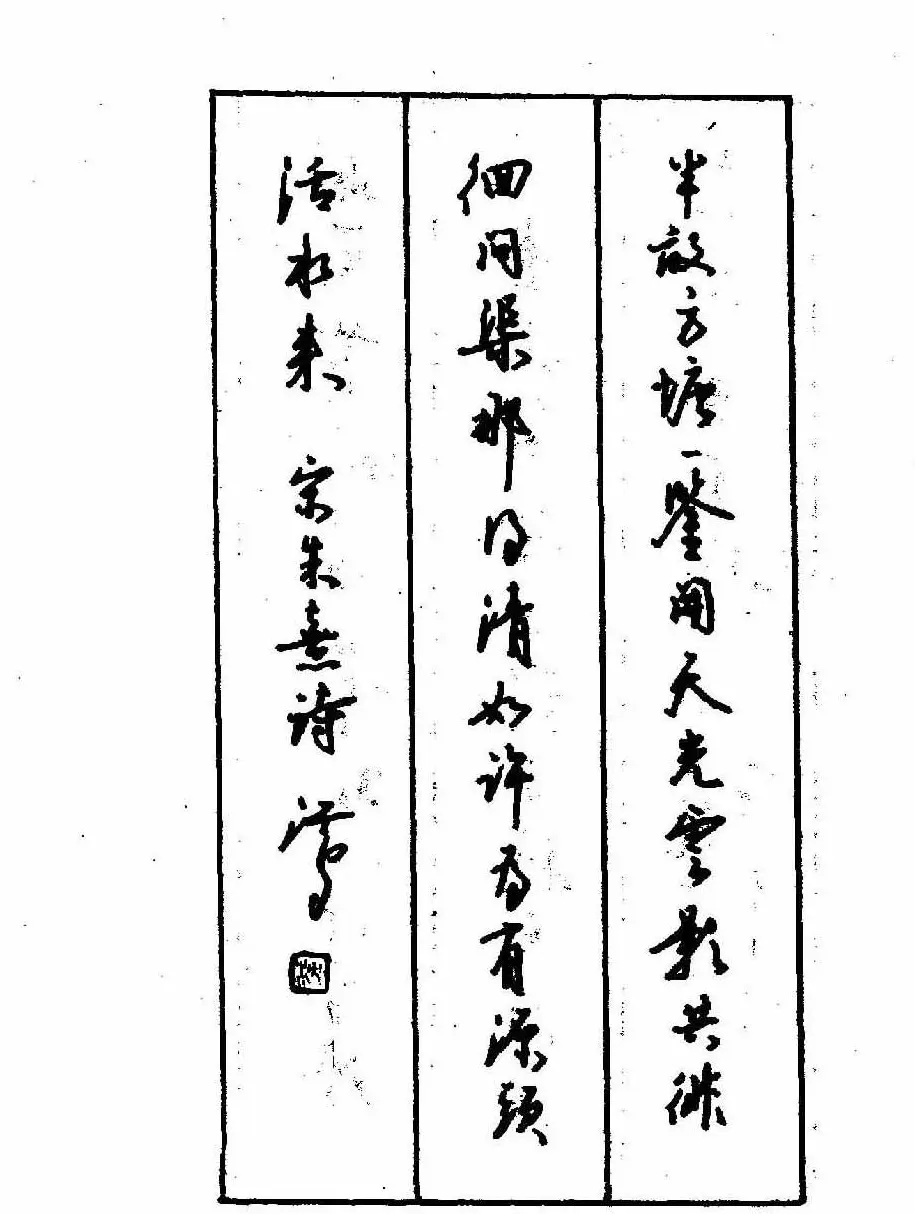 半畝方塘一鑒開天光雲影共徘
徊問渠那得清如許為有源頭
活水来 宋朱熹詩